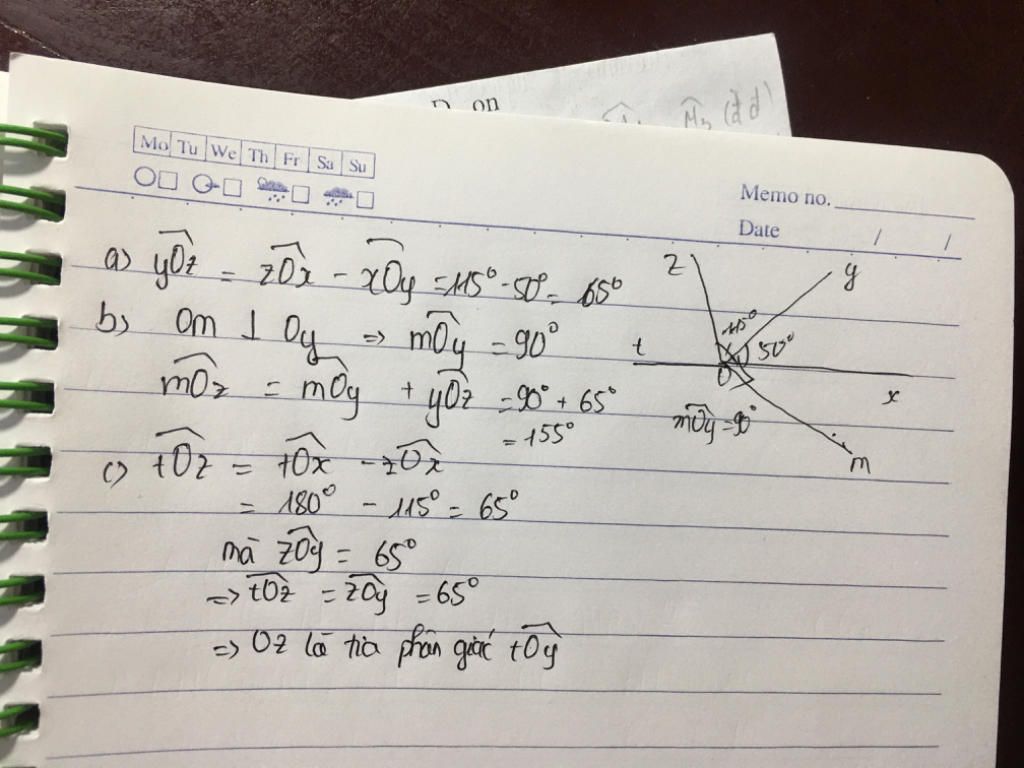 D on
M̂₃ (đ đ)
Mo Tu We Th Fr Sa Su
Memo no.
Date / /
a) yOz = zOx - xOy = 115° - 50° = 65°
b) Om ⊥ Oy => mOy = 90°
mOz = mOy + yOz = 90° + 65°
= 155°
c) tOz = tOx - zOx
= 180° - 115° = 65°
mà zOy = 65°
=> tOz = zOy = 65°
=> Oz là tia phân giác tOy
z
y
115°
50°
t
O
x
mOy = 90°
m